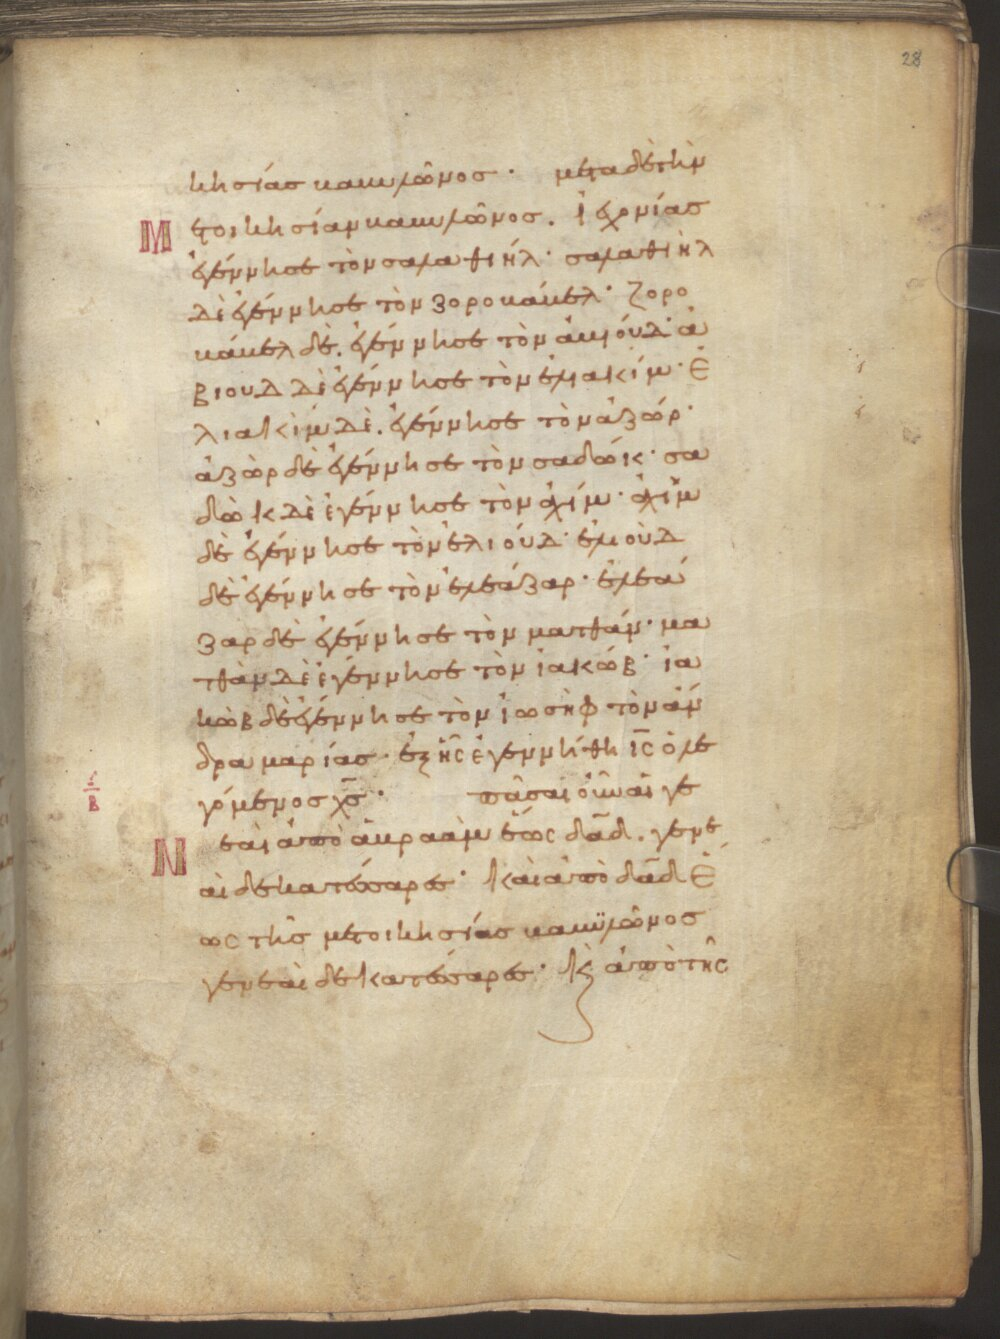 28
κησίας βαβυλῶνος· μετα δὲ τὴν
Μ ετοικησίαν βαβυλῶνος. ἰεχονίας
ἐγέννησε τὸν σαλαθιήλ· σαλαθιὴλ
δὲ ἐγέννησε τὸν ζοροβάβελ· ζορο
βάβελ δὲ. ἐγέννησε τὸν ἀβιούδ· ἀ
βιουδ δὲ ἐγέννησε τὸν ἐλιακίμ· ἐ
λιακὶμ δὲ. ἐγέννησε τὸν ἀζώρ·
ἀζὼρ δὲ ἐγέννησε τὸν σαδώκ· σα
δὼκ δὲ ἐγέννησε τὸν ἀχίμ· ἀχὶμ
δὲ ἐγέννησε τὸν ἐλιούδ· ἐλιοὺδ
δὲ ἐγέννησε τὸν ἐλεάζαρ· ἐλεά
ζαρ δὲ ἐγέννησε τὸν ματθάν· μα
τθὰν δὲ ἐγέννησε τὸν ἰακώβ· ἰα
κὼβ δὲ ἐγέννησε τὸν ἰωσὴφ τὸν ἄν
δρα μαρίας· ἐξ ἧς ἐγεννήθη ι̅ς̅ ὁ λε
γόμενος χ̅ς̅· πᾶσαι οὖν αἱ γε
Ν εαὶ ἀπὸ ἀβραὰμ ἕως δα̅δ̅. γενε
αὶ δεκατέσσαρες· καὶ ἀπὸ δα̅δ̅ ἕ
ως τῆς μετοικησίας βαβυλῶνος
γενεαὶ δεκατέσσαρες· κ̀ ἀπὸ τῆς